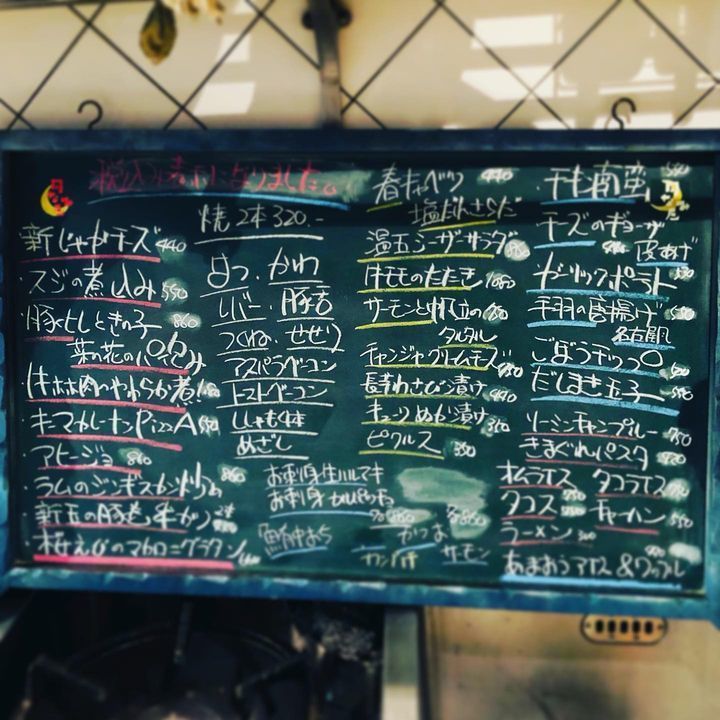 税込み表示になりました。
新じゃがチーズ 440
スジの煮込み 550
豚ヒレときの子 860
菜の花の
牛ホホ肉のやわらか煮
キーマカレーナンPizzA 550
アヒージョ 860
ラムのジンギスカン炒め 860
新玉の豚毛串カツ
桜えびのマカロニグラタン
焼 2本 320.-
かわ
レバー・豚舌
つくね・せせり
アスパラベーコン
トマトベーコン
ししゃも4本
めざし
お刺身生ハルマキ
お刺身カルパッチョ
カンパチ
かつお
サーモン
春キャベツ 440
塩だれさらだ
温玉シーザーサラダ
牛モモのたたき 1080
サーモンと帆立の
タルタル
チャンジャクリームチーズ
長芋わさび漬け 440
キューリぬか漬け 360
ピクルス 350
チキン南蛮 550
チーズのギョーザ
皮あげ
ガーリックポテト
手羽の唐揚げ
名古屋風
ごぼうチップ
だしまき玉子 550
ソーミンチャンプルー 750
きまぐれパスタ
オムライス
タコライス
タコス
チャーハン 550
ラーメン
あまおうアイス&ワッフル